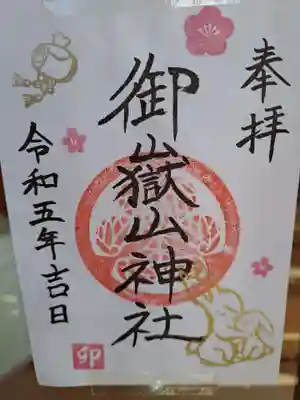 奉拝
御山嶽山神社
令和五年吉日
卯